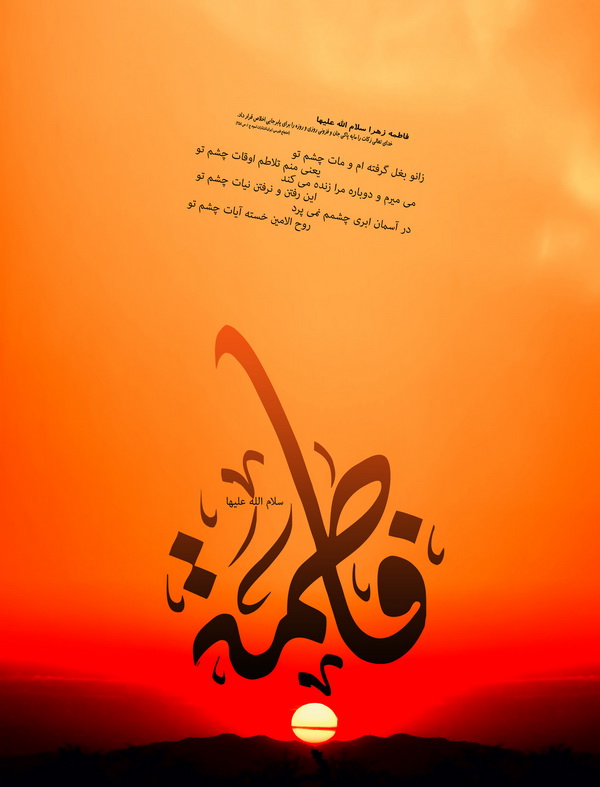 فاطمه زهرا سلام الله علیها
خدای تعالی زکات را مایه پاکی جان و فزونی روزی و روزه را برای پابرجایی اخلاص قرار داد.
زانو بغل گرفته ام و مات چشم تو
یعنی منم تلاطم اوقات چشم تو
می میرم و دوباره مرا زنده می کند
این رفتن و نرفتن نیات چشم تو
در آسمان ابری چشمم نمی پرد
روح الامین خسته آیات چشم تو
سلام الله علیها
فاطمة